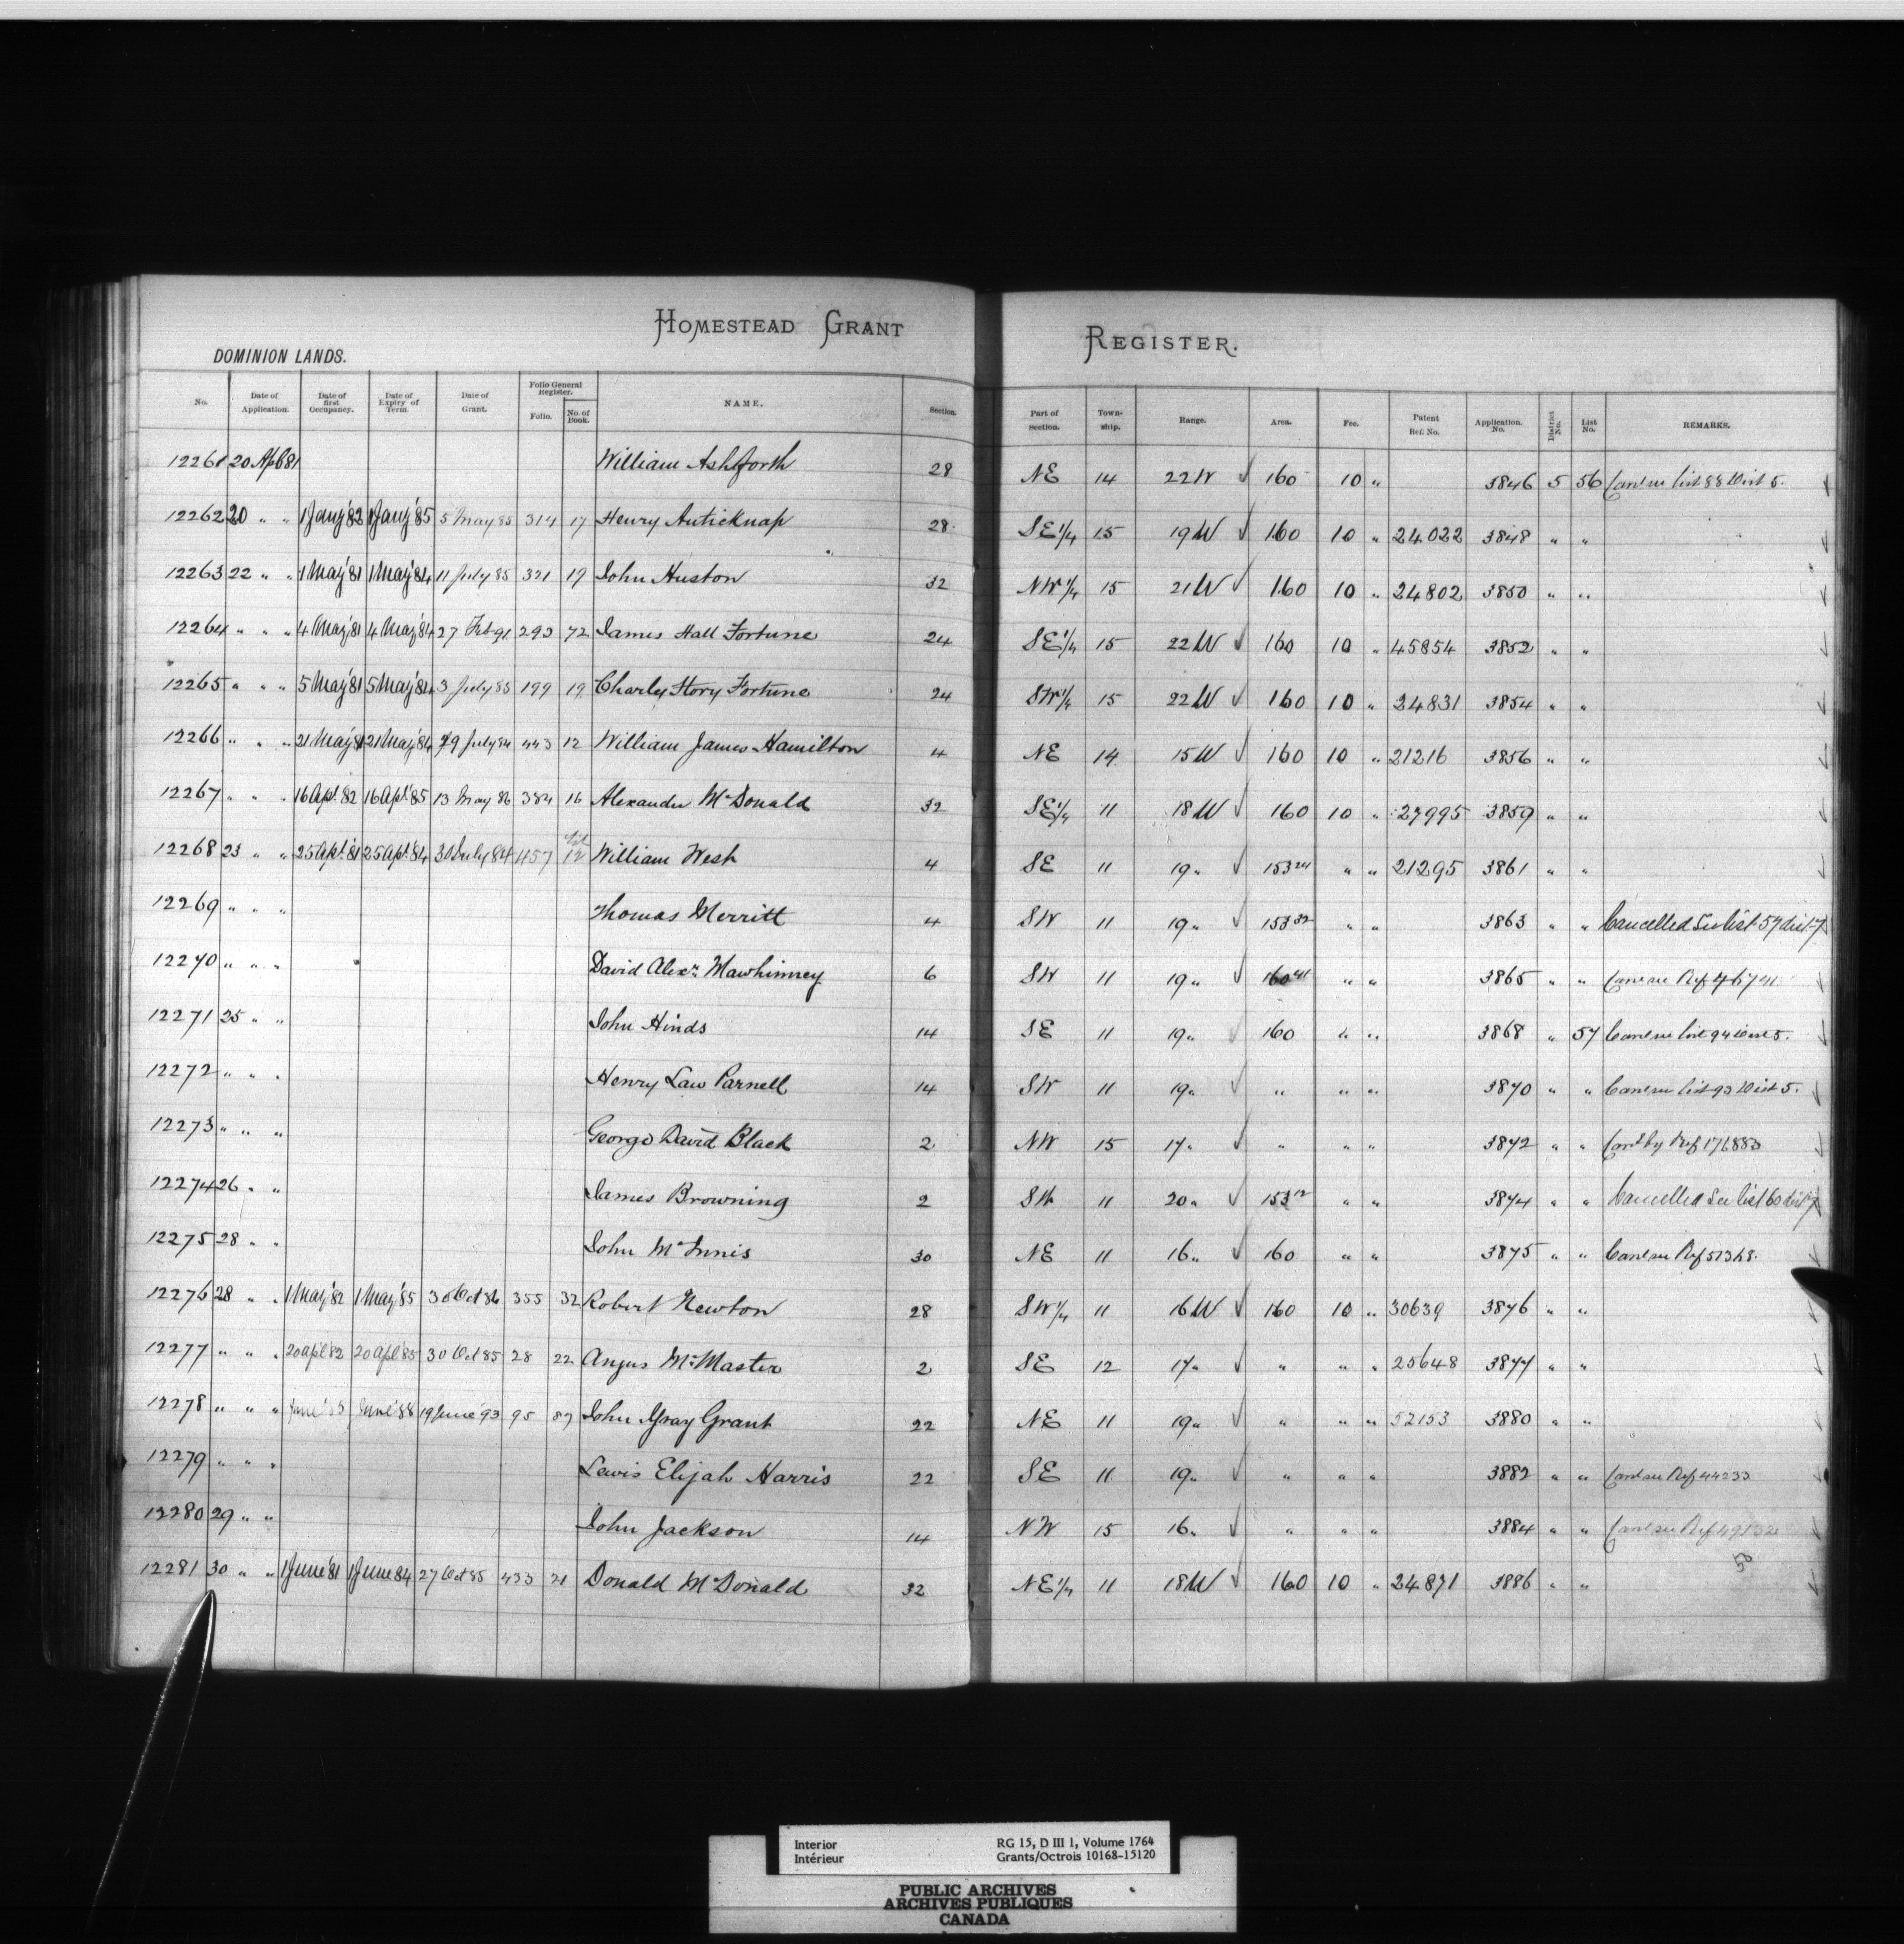 HOMESTEAD GRANT REGISTER.
DOMINION LANDS.
No. Date of Application. Date of first Occupancy. Date of Expiry of Term. Date of Grant. Folio General Register. Folio. No. of Book. NAME. Section. Part of Section. Town-ship. Range. Area. Fee. Patent Ref. No. Application. No. District No. List No. REMARKS.
12261 20 Apl 81 William Ashforth 28 NE 14 22W 160 10 " 3846 5 56 Canc see list 88 Dist 5.
12262 20 " " 1 Jany '82 1 Jany '85 5 May 85 314 17 Henry Anticknap 28 SE 1/4 15 19W 160 10 " 24022 3848 " "
12263 22 " " 1 May '81 1 May '84 11 July 85 321 19 John Huston 32 NW 1/4 15 21W 160 10 " 24802 3850 " "
12264 " " " 4 May '81 4 May '84 27 Feb 91 293 72 James Hall Fortune 24 SE 1/4 15 22W 160 10 " 45854 3852 " "
12265 " " " 5 May '81 5 May '84 3 July 85 199 19 Charley Story Fortune 24 SW 1/4 15 22W 160 10 " 24831 3854 " "
12266 " " " 21 May '81 21 May '84 29 July 84 443 12 William James Hamilton 4 NE 14 15W 160 10 " 21216 3856 " "
12267 " " " 16 Apl. '82 16 Apl. '85 13 May 86 384 16 Alexander McDonald 32 SE 1/4 11 18W 160 10 " 27995 3859 " "
12268 23 " " 25 Apl. '81 25 Apl. '84 30 July 84 457 12 William West 4 SE 11 19 " 153 24 " " 21295 3861 " "
12269 " " " Thomas Merritt 4 SW 11 19 " 153 32 " " 3863 " " Cancelled See list 57 dist 7
12270 " " " David Alexr. Mawhinney 6 SW 11 19 " 160 41 " " 3865 " " Canc see Ref 46741
12271 25 " " John Hinds 14 SE 11 19 " 160 " " 3868 " 57 Canc see list 94 Dist 5.
12272 " " " Henry Law Parnell 14 SW 11 19 " " " " 3870 " " Canc see list 93 Dist 5.
12273 " " " George David Black 2 NW 15 17 " " " " 3872 " " Cancd by Ref 176883
12274 26 " " James Browning 2 SW 11 20 " 153 12 " " 3874 " " Cancelled See list 60 dist 7
12275 28 " " John McInnis 30 NE 11 16 " 160 " " 3875 " " Canc see Ref 51368.
12276 28 " " 1 May '82 1 May '85 30 Oct 86 355 32 Robert Newton 28 SW 1/4 11 16W 160 10 " 30639 3876 " "
12277 " " " 20 Apl '82 20 Apl '85 30 Oct 85 28 22 Angus McMaster 2 SE 12 17 " " " " 25648 3877 " "
12278 " " " June June '88 19 June '93 95 87 John Gray Grant 22 NE 11 19 " " " " 52153 3880 " "
12279 " " " Lewis Elijah Harris 22 SE 11 19 " " " " 3882 " " Canc see Ref 44233
12280 29 " " John Jackson 14 NW 15 16 " " " " 3884 " " Canc see Ref 49132
50
12281 30 " " 1 June '81 1 June 84 27 Oct 85 433 21 Donald McDonald 32 NE 1/4 11 18W 160 10 " 24871 3886 " "
Interior RG 15, D III 1, Volume 1764
Intérieur Grants/Octrois 10168-15120
PUBLIC ARCHIVES
ARCHIVES PUBLIQUES
CANADA